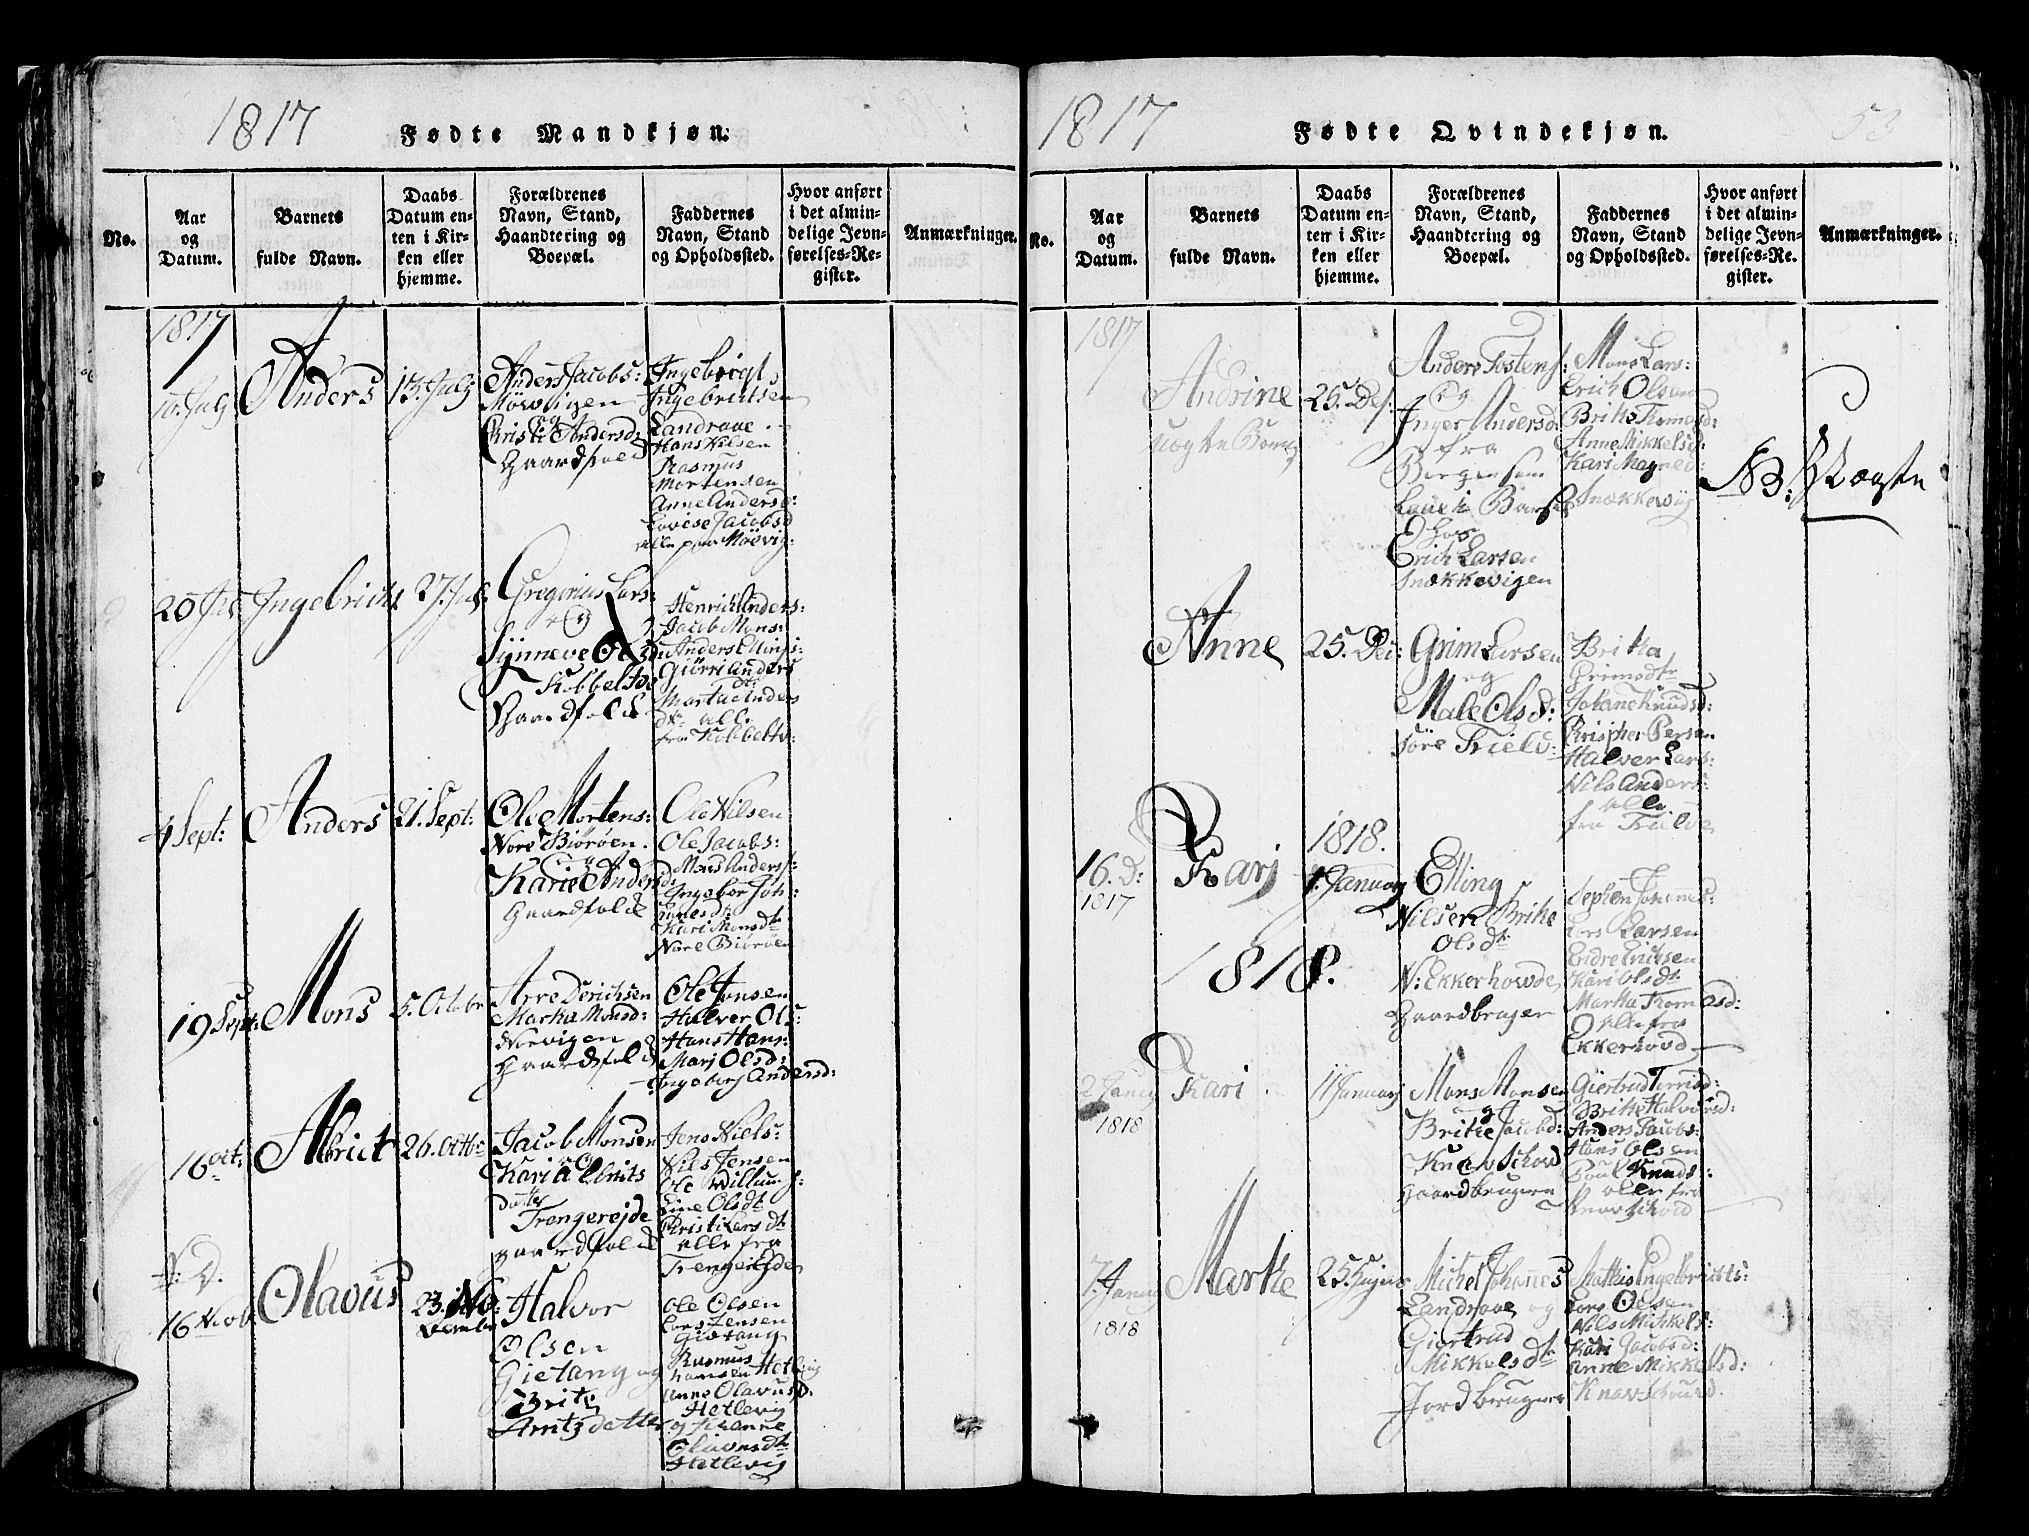 1817 Fødte Mandkjøn.
No.
Aar
og
Datum.
Barnets
fulde Navn.
Daabs
Datum en-
ten i Kir-
ken eller
hjemme.
Forældrenes
Navn, Stand,
Haandtering og
Boepæl.
Faddernes
Navn, Stand
og Opholdssted.
Hvor anført
i det almin-
delige Jevn-
førelses-Re-
gister.
Anmærkninger.
1817
10. July
Anders
13. July
Anders Jacobs:
Mövvigen
og
Kristi Andersd:
Gaardfold
Ingebrigt
Ingebrictsen
Landrave
Hans Nilsen
Rasmus
Mortensen
Anne Andersd:
Lovise Jacobsd
alle paa Mövig:
20 Jul
Ingebricht
27. Jul:
Gregorius Lars:
og
Synneve Olsd
Kobbeltve
Gaardfold
Henrich Anders:
Jacob Mons:
Anders Ellings:
Giörri Anders
dt:
Marta Anders
dt: alle
fra Kobbeltv:
4 Sept:
Anders
21. Sept:
Ole Mortens:
Nore Biöröen.
og
Kari Andersd:
Gaardfolde
Ole Nilsen
Ole Jacobs:
Mons Anders:
Ingebor Joh:
Kari Monsdt
Nore Biöröen
19 Sept:
Mons
5. Octobr
Arve Derichsen
Marta Monsd:
Norvigen
Gaardsfold
Ole Jonsen
Halver Ols:
Hans Hans:
Marj Olsd:
Ingeborj Andersd:
16 oct:
Albrict
26. Octb
Jacob Monsen
og
Kari Albrits
Datter
Trengerejde
gaardfolde
Jens Niels:
Nils Jensen
Ole Willums:
Line Olsdt
Kristi Larsdt
alle fra
Trengerejde
16 Novb
Olavus
23. No:
vember
Halvor
Olsen
Gietang og
Brite
Arntzdatter
Ole Olsen
Lars Jensen
Gietang
Rasmus
Hansen Hetlevig
Anne Olavusd:
Hetlevig
og Johanne
Olavusdt
Hetlevig
1817 Fødte Qvindekjøn. 53
No.
Aar
og
Datum.
Barnets
fulde Navn.
Daabs
Datum en-
ten i Kir-
ken eller
hjemme.
Forældrenes
Navn, Stand,
Haandtering og
Boepæl.
Faddernes
Navn, Stand
og Opholdssted.
Hvor anført
i det almin-
delige Jevn-
førelses-Re-
gister.
Anmærkninger.
1817
Andrine
uægte Barn
25. Des.
Anders Tostens:
og
Inger Andersd:
fra
Bergen som
Laae i Barsel
hos
Erich Larsen
Snækkevigen
Mons Lars:
Erich Olsen
Brite Thomasd:
Anne Mikkelsd:
Kari Magned:
Snækkevig
NB: Uægte
Anne
25. Dec:
Grim Larsen
og
Male Olsd:
Söre Trielv:
Britha
Grimsdt
Johane Knudsd:
Kristpher Persen
Halver Lars:
Nils Anders:
alle
fra Trielve
16. D:
1817
Karj
1818.
1. January
Elling
Nilsen Brite
Olsdt
N: Ekkerhovde
Gaardbruger
Sephen Johannes:
Lars Larsen
Endre Ericksen
Kari Olsdt
Martha Thomasd:
alle fra
Ekkerhovd
1818.
2 Januy
1818
Kari
11 January
Mons Monsen
og
Brite Jacobd:
Knarvschovd
gaardbrugere
Giertrud
Brite Halvorsd:
Anders Jacobs:
Hans Olsen
Poul Knuds:
alle fra
Knavschovd
7. Januy
1818
Marthe
25.
Michel Johannes
Landrove og
Giertrud
Mikkelsdt
Jordbruger
Mathis Ingebrictts:
Lars Olsen
Nils Mickels:
Kari Jacobsd:
Anne Mikkelsd:
Knavschovd.